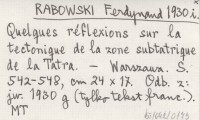 RABOWSKI Ferdynand 1930 i.
Quelques réflexions sur la
tectonique de la zone subtatrique
de la Tatra. — Warszawa. S.
542-548, cm 24 x 17. Odb. z:
jw. 1930 g (tylko tekst franc.).
MT